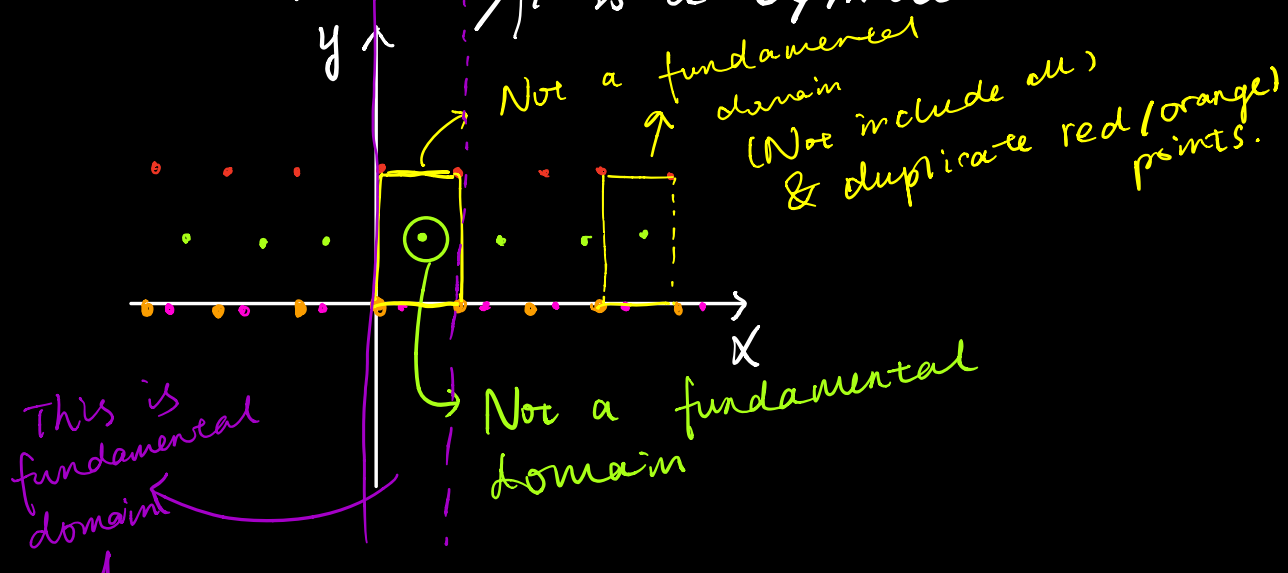 is a
y
Not a fundamental
domain
(Not include all)
& duplicate red/orange)
points.
x
Not a fundamental
domain
This is
fundamental
domain